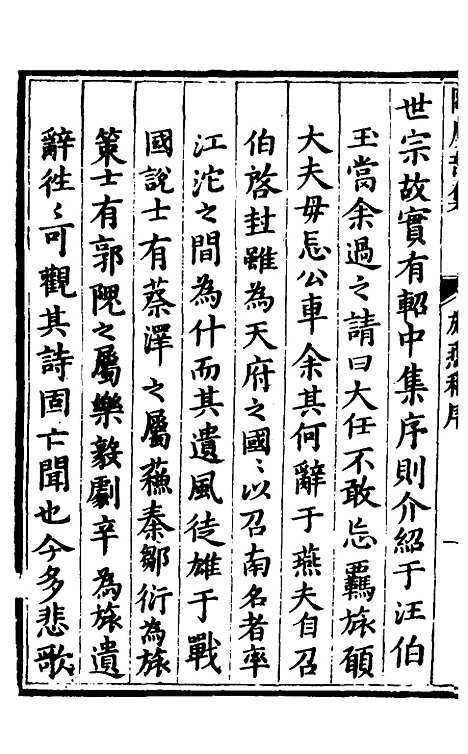 世宗故實有軺中集序則介紹于汪伯
玉當余過之請曰大任不敢忘羈旅願
大夫毋忘公車余其何辭于燕夫自召
伯啓封雖為天府之國〻以召南名者率
江沱之間為什而其遺風徒雄于戰
國說士有蔡澤之屬蘇秦鄒衍為旅
策士有郭隗之屬樂毅劇辛為旅遺
辭徃〻可觀其詩固亡聞也今多悲歌